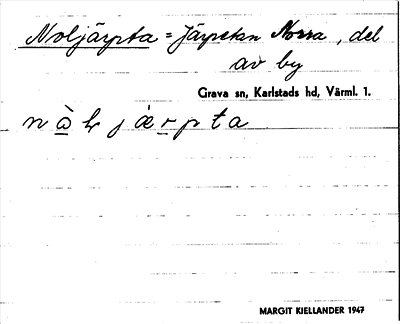 Noljärpta = Järpetan Norra, del
av by
Grava sn, Karlstads hd, Värml. 1.
MARGIT KIELLANDER 1947